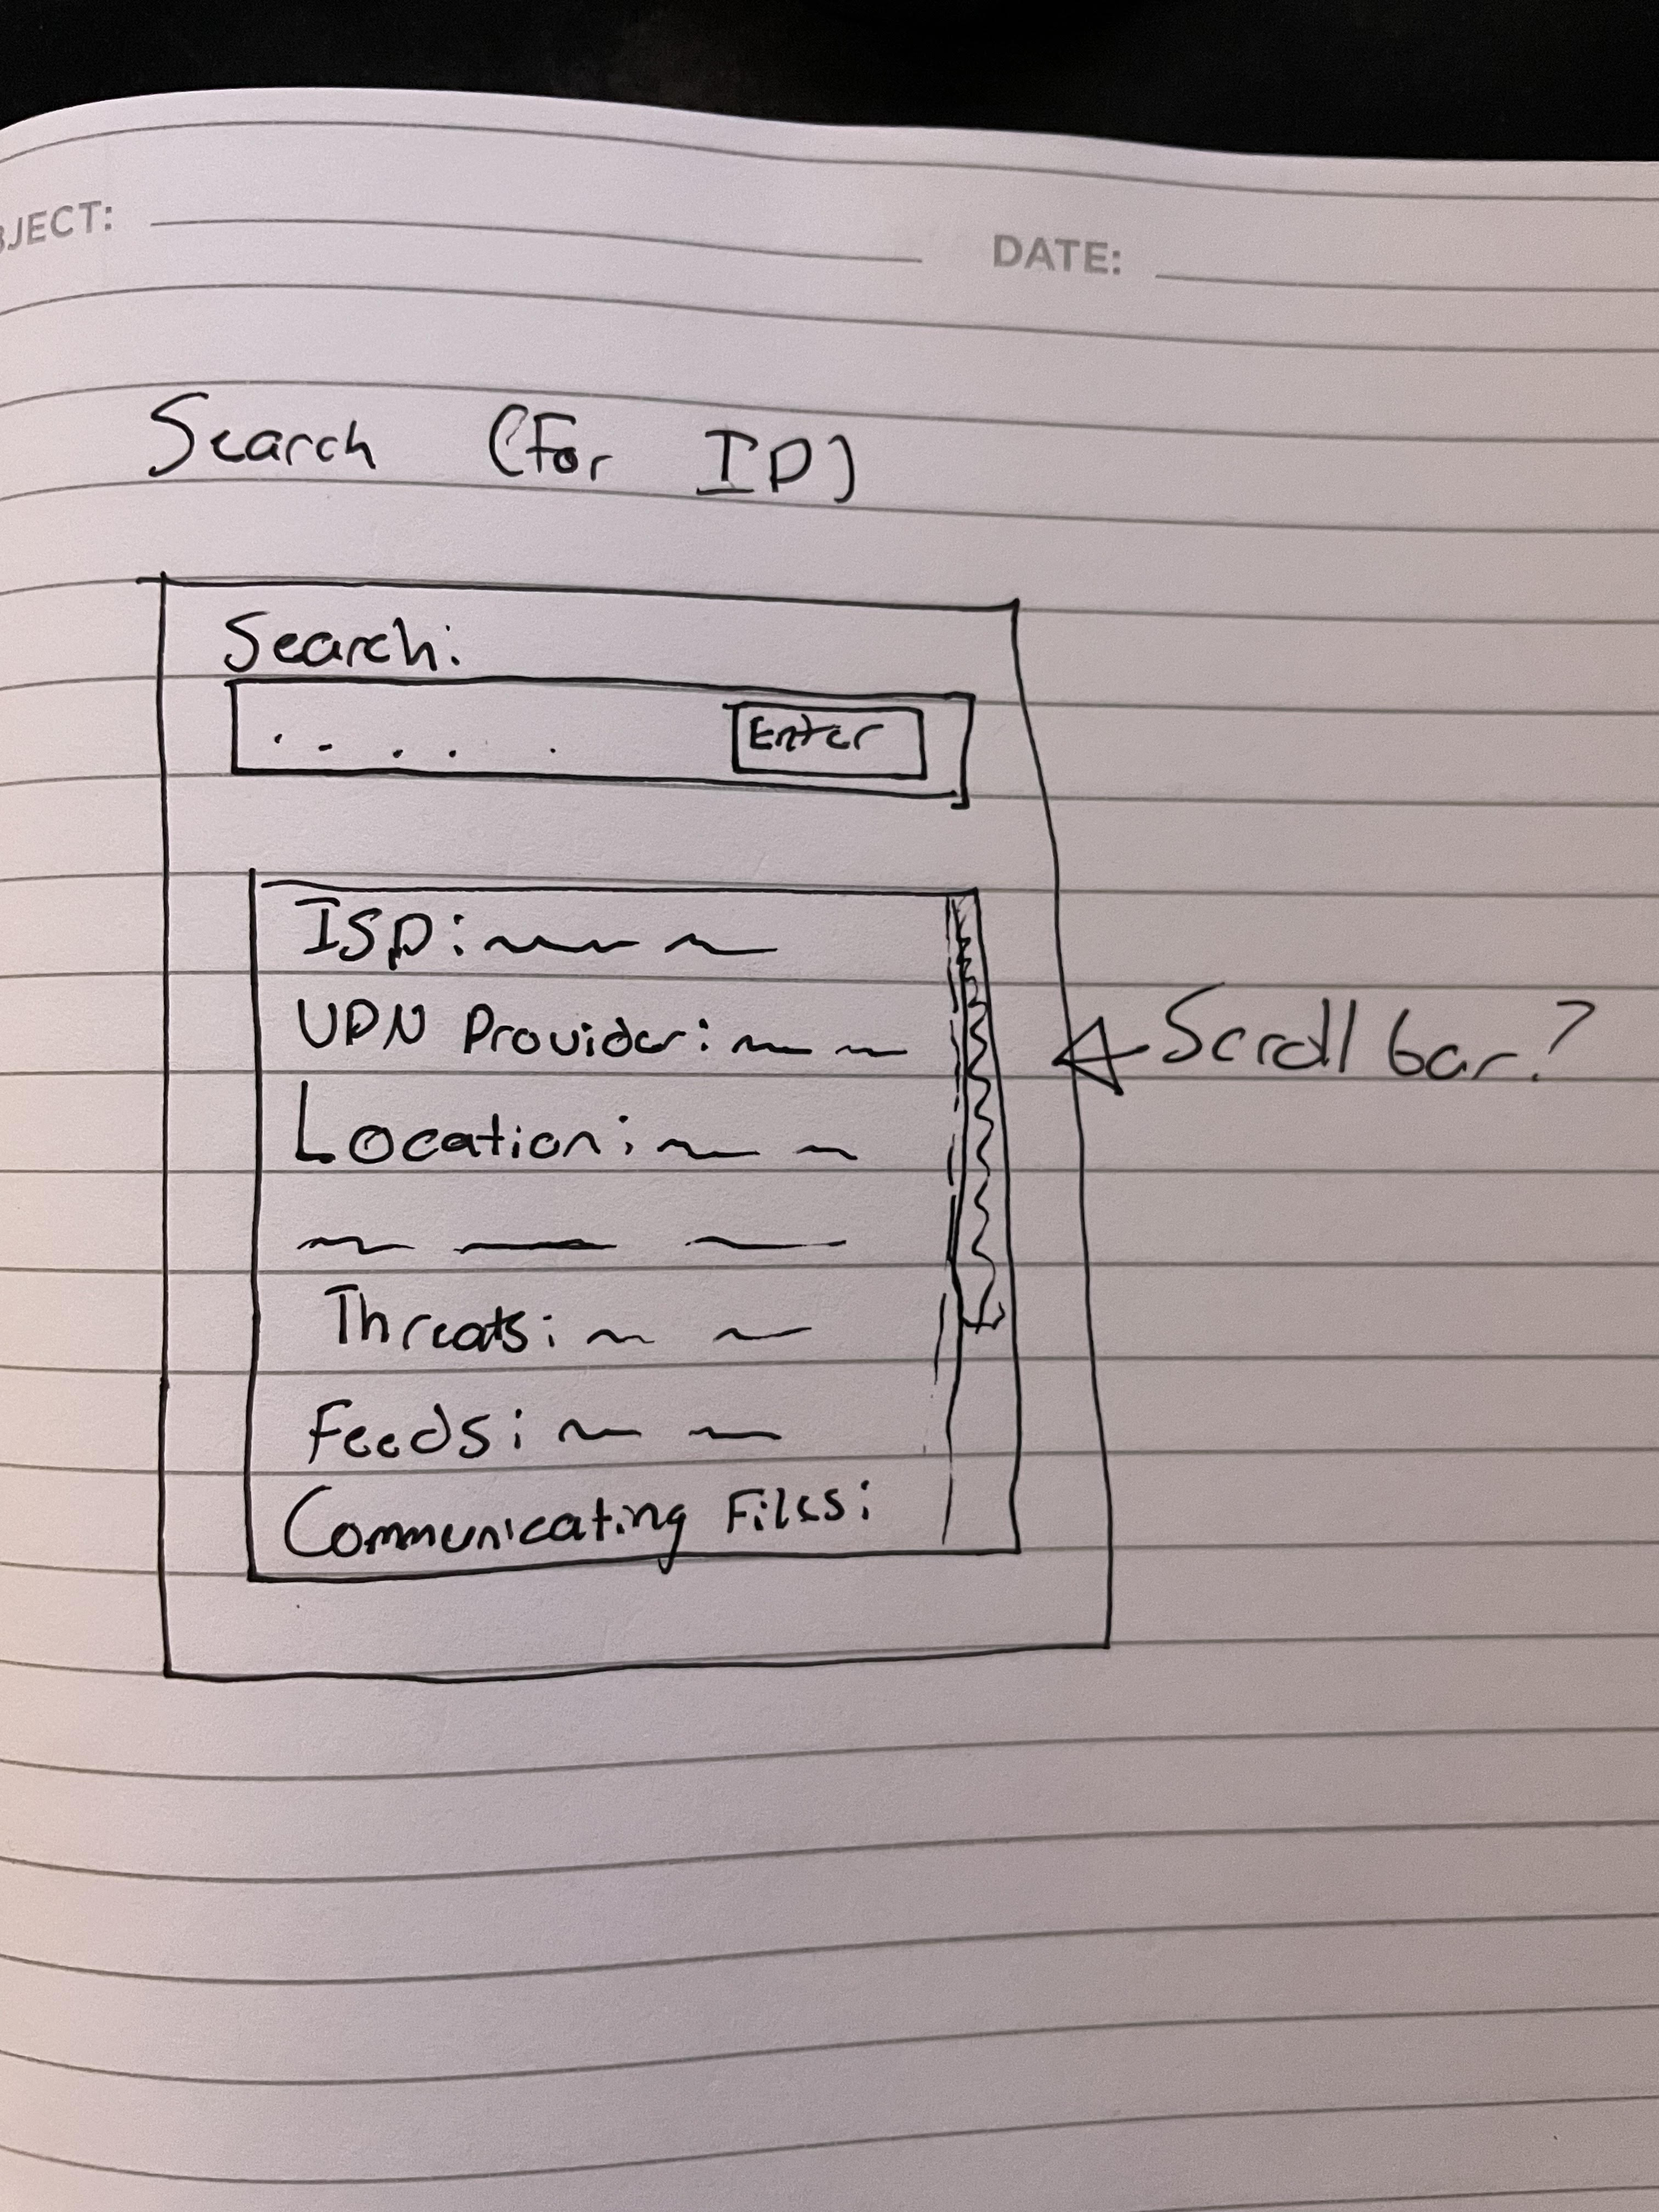 BJECT:
DATE:
Search (For IP)
Search:
Enter
ISP:
VPN Provider:
Location:
Threats:
Feeds:
Communicating Files:
Scroll bar?